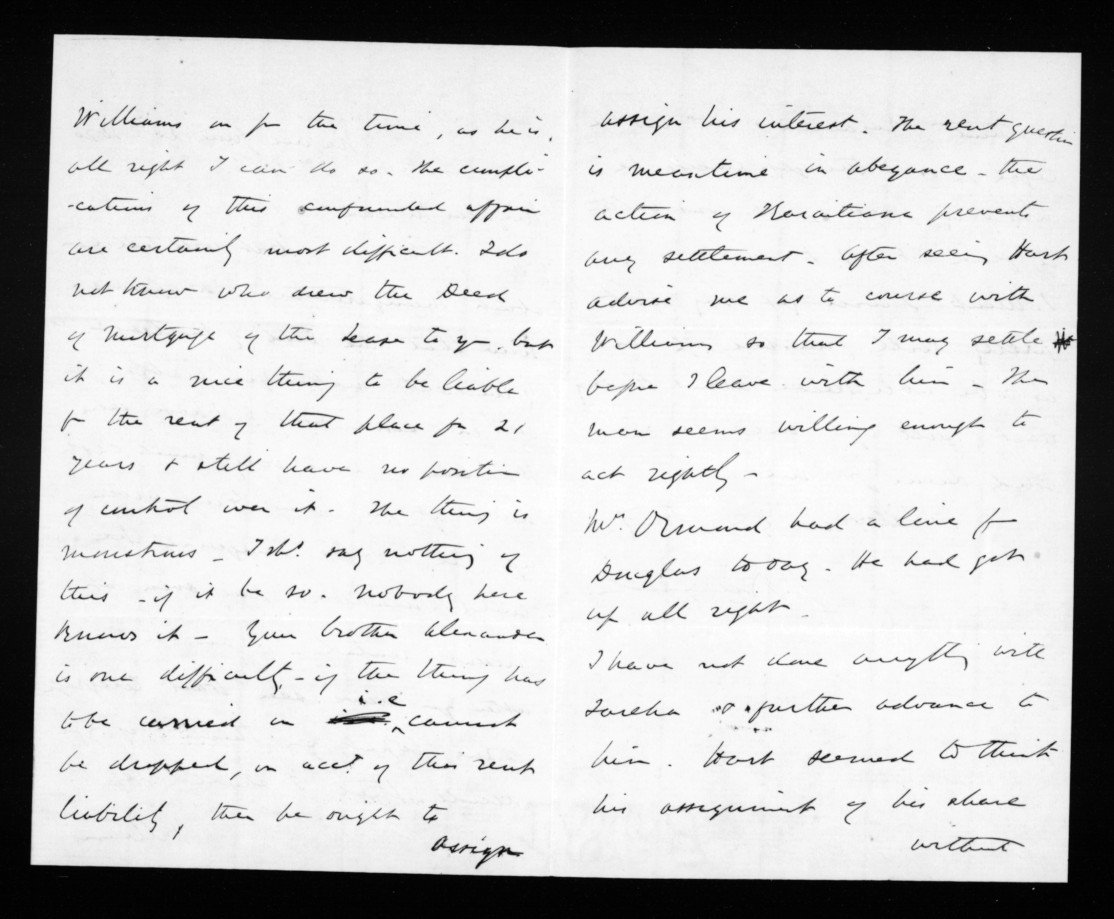 Williams on for the time, as he is,
all right I can do so - The compli-
-cations of this confounded affair
are certainly most difficult. I do
not know who drew the Deed
of mortgage of this Lease to you, but
it is a nice thing to be liable
for the rent of that place for 21
years & still have no position
of control over it - The thing is
monstrous - I shd. say nothing of
this - if it be so - nobody here
knows it - Your brother Alexander
is one difficulty, - if the thing has
to be carried on i.e cannot
be dropped, on acct. of this rent
liability, then he ought to
assign
assign his interest - The rent question
is meantime in abeyance - the
action of Karaitiana prevents
any settlement - After seeing Hart
advise me as to course with
Williams so that I may settle
before I leave with him - The
man seems willing enough to
act rightly -
Mr. Ormond had a line fr
Douglas today - He had got
up all right -
I have not done anything with
Tareha so further advance to
him. Hart seemed to think
his assignment of his share
without